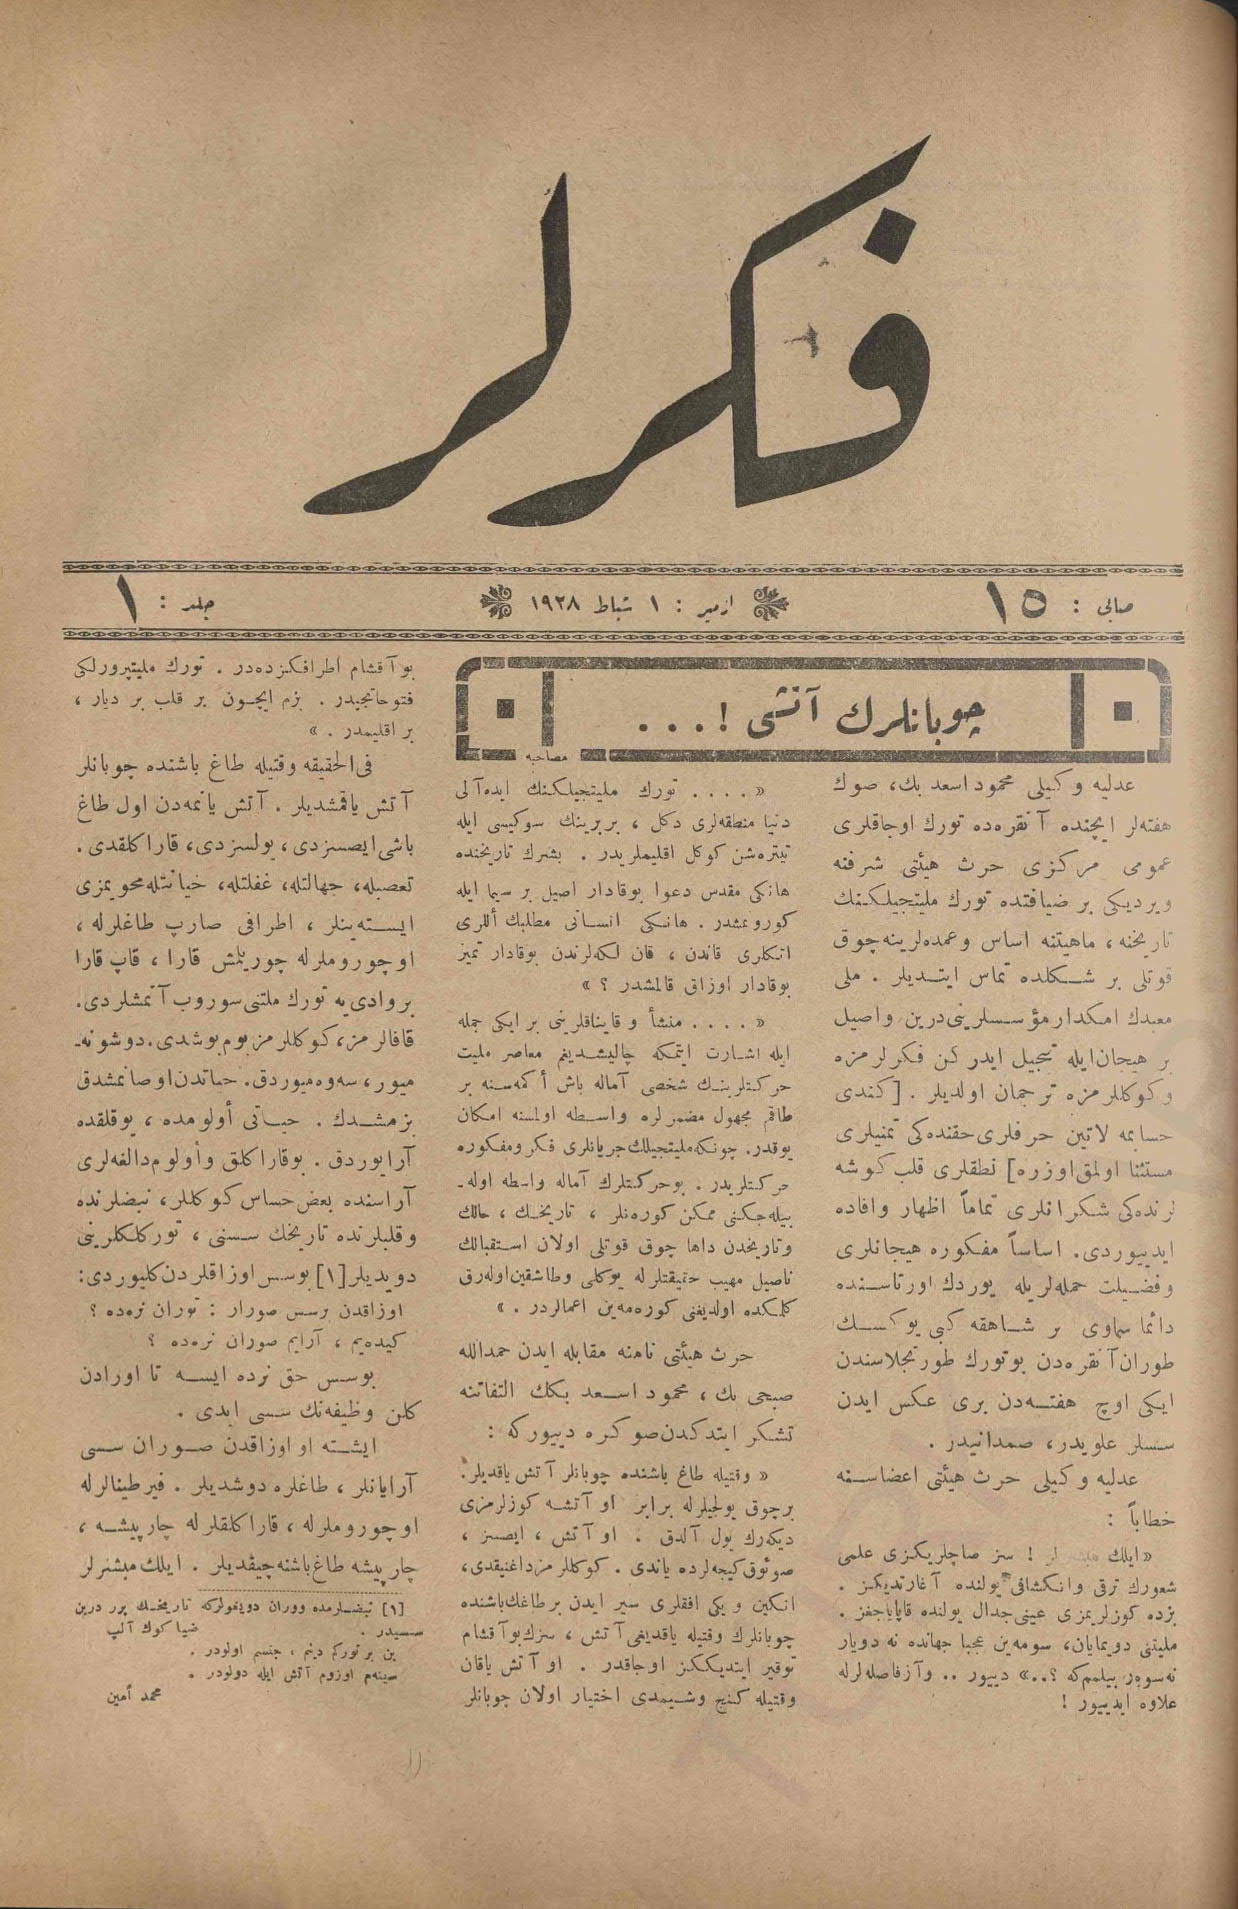 فكرلر
صايى : ١٥
ازمير : ١ شباط ١٩٢٨
جلد : ١
چوبانلرك آتشى !...
مصاحبه
عدليه وكيلى محمود اسعد بك، صوك
هفته‌لر ايچنده آنقره‌ده تورك اوجاقلرى
عمومى مركزى حرث هيئتى شرفنه
ويرديكى بر ضيافتده تورك مليتجيلكنك
تاريخنه، ماهيتنه اساس وعمده‌لرينه چوق
قوتلى بر شكلده تماس ايتديلر . ملى
معبدك امكدار مؤسسلرينى درين واصيل
بر هيجان ايله تبجيل ايدركن فكرلرمزه
وكوكللرمزه ترجمان اولديلر . [كندى
حسابمه لاتين حرفلرى حقنده‌كى تمنيلرى
مستثنا اولمق اوزره] نطقلرى قلب كوشه
لرنده‌كى شكرانلرى تماماً اظهار وافاده
ايدييوردى. اساساً مفكوره هيجانلرى
وفضيلت حمله‌لريله يوردك اورتاسنده
دائما سماوى بر شاهقه كبى يوكسك
طوران آنقره‌دن بو تورك طور تجلاسندن
ايكى اوچ هفته‌دن برى عكس ايدن
سسلر علويدر، صمدانيدر .
عدليه وكيلى حرث هيئتى اعضاسنه
خطاباً :
«ايلك مبشرلر ! سز صاچلريكزى علمى
شعورك ترقى وانكشافى يولنده آغارتديكز .
بزده كوزلريمزى عينى جدال يولنده قاپاياجغز .
مليتنى دويمايان، سومه‌ين عجبا جهانده نه دويار
نه‌سوه‌ر بيلمم‌كه ؟..» دييور .. وآز فاصله‌لرله
علاوه ايدييور !
« .... تورك مليتجيلكنك ايده‌آلى
دنيا منطقه‌لرى دكل ، بربرينك سوكيسى ايله
تيتره‌شن كوكل اقليملريدر . بشرك تاريخنده
هانكى مقدس دعوا بوقادار اصيل بر سيما ايله
كورونمشدر . هانكى انسانى مطلبك أللرى
اتكلرى قاندن ، قان لكه‌لرندن بوقادار تميز
بوقادار اوزاق قالمشدر ؟ »
« .... منشأ و قايناقلرينى بر ايكى جمله
ايله اشارت ايتمكه چاليشديغم معاصر مليت
حركتلرينك شخصى آماله باش أكمه‌سنه بر
طاقم مجهول مضمرلره واسطه اولمسنه امكان
يوقدر. چونكه مليتجيلك جريانلرى فكر ومفكوره
حركتلريدر . بو حركتلرك آماله واسطه اوله‌ـ
بيله‌جكنى ممكن كوره‌نلر ، تاريخك ، حالك
وتاريخدن داها چوق قوتلى اولان استقبالك
ناصيل مهيب حقيقتلرله يوكلى وطاشقين اوله‌رق
كلمكده اولديغنى كوره‌مه‌ين اعمالردر . »
حرث هيئتى نامنه مقابله ايدن حمدالله
صبحى بك ، محمود اسعد بكك التفاتنه
تشكر ايتدكدن صوكره دييوركه :
« وقتيله طاغ باشنده چوبانلر آتش ياقديلر.
برچوق يولجيلرله برابر او آتشه كوزلرمزى
ديكه‌رك يول آلدق . او آتش ، ايصسز ،
صوئوق كيجه‌لرده ياندى . كوكللرمز داغنيقدى،
انكين و يكى افقلرى سير ايدن بر طاغك باشنده
چوبانلرك وقتيله ياقديغى آتش ، سزك بو آقشام
توقير ايتديككز اوجاقدر . او آتش ياقان
وقتيله كنج وشيمدى اختيار اولان چوبانلر
بو آقشام اطرافكزده‌در . تورك مليتپرورلكى
فتوحاتجيدر . بزم ايچون بر قلب بر ديار ،
بر اقليمدر . »
فى الحقيقه وقتيله طاغ باشنده چوبانلر
آتش ياقمشديلر . آتش يانمه‌دن اول طاغ
باشى ايصسزدى، يولسزدى، قاراكلقدى.
تعصبله، جهالتله، غفلتله، خيانتله محويمزى
ايسته‌ينلر ، اطرافى صارپ طاغلرله ،
اوچوروملرله چوريلمش قارا ، قاپ قارا
بر وادى يه تورك ملتنى سوروب آتمشلردى.
قافالرمز، كوكللرمز بوم بوشدى. دوشونه‌ـ
ميور، سه‌وه‌ميوردق. حياتدن اوصانمشدق
بزمشدك . حياتى أولومده ، يوقلقده
آرايوردق . بو قاراكلق وأولوم دالغه‌لرى
آراسنده بعض حساس كوكللر، نبضلرنده
وقلبلرنده تاريخك سسنى ، توركلكلرينى
دويديلر [١] بو سس اوزاقلردن كليوردى:
اوزاقدن برسس صورار : توران نره‌ده ؟
كيده‌يم ، آرايم صوران نره‌ده ؟
بو سس حق نرده ايسه تا اورادن
كلن وظيفه‌نك سسى ايدى .
ايشته او اوزاقدن صوران سسى
آرايانلر ، طاغلره دوشديلر . فيرطينالرله
اوچوروملرله ، قاراكلقلرله چارپيشه ،
چارپيشه طاغ باشنه چيقديلر . ايلك مبشرلر
[١] نبضلرمده ووران دويغولركه تاريخك برر درين
سسيدر . ضيا كوك آلپ
بن بر توركم دينم ، جنسم اولودر .
سينه‌م اوزوم آتش ايله دولودر .
محمد أمين